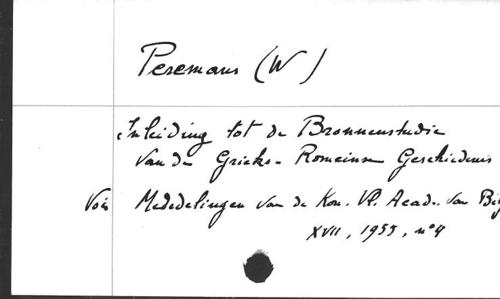 Peremans (W)
Inleiding tot de Bronnenstudie
van de Grieks-Romeinse Geschiedenis
Voir Mededelingen van de Kon. Vl. Acad. van
XVII, 1955, n°4